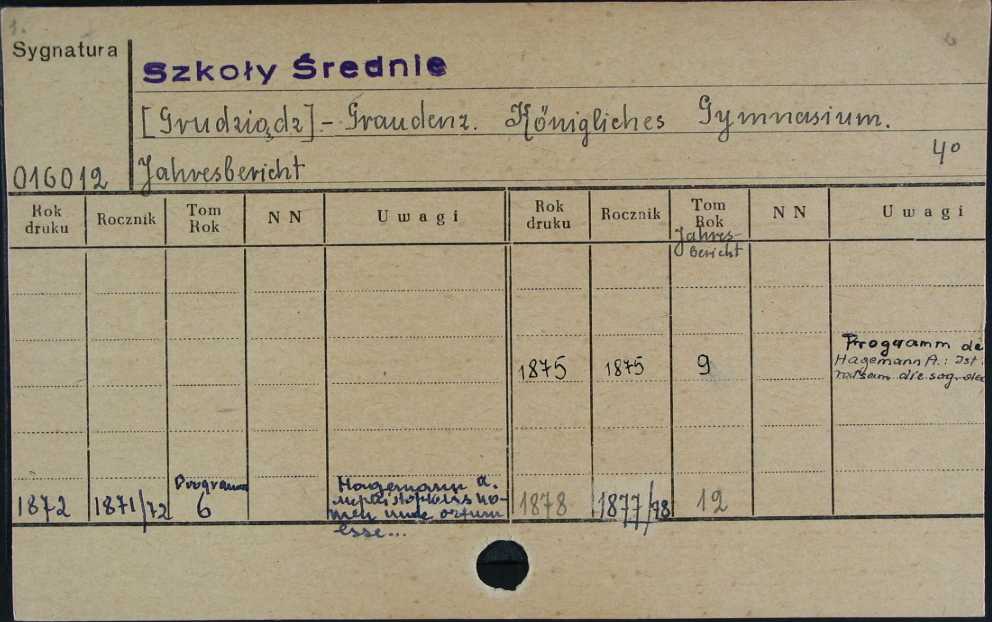 Sygnatura
Szkoły Średnie
[Grudziądz] - Graudenz. Königliches Gymnasium.
4°
016012 Jahresbericht
Rok druku Rocznik Tom Rok N N Uwagi Rok druku Rocznik Tom Rok N N Uwagi
Jahres-
bericht
Programm de
1875 1875 9 Hagemann A.: Ist
ratsam die sog.
Programm Hagemann A.
1872 1871/72 6 1878 1877/78 12
men unde ortum
esse...